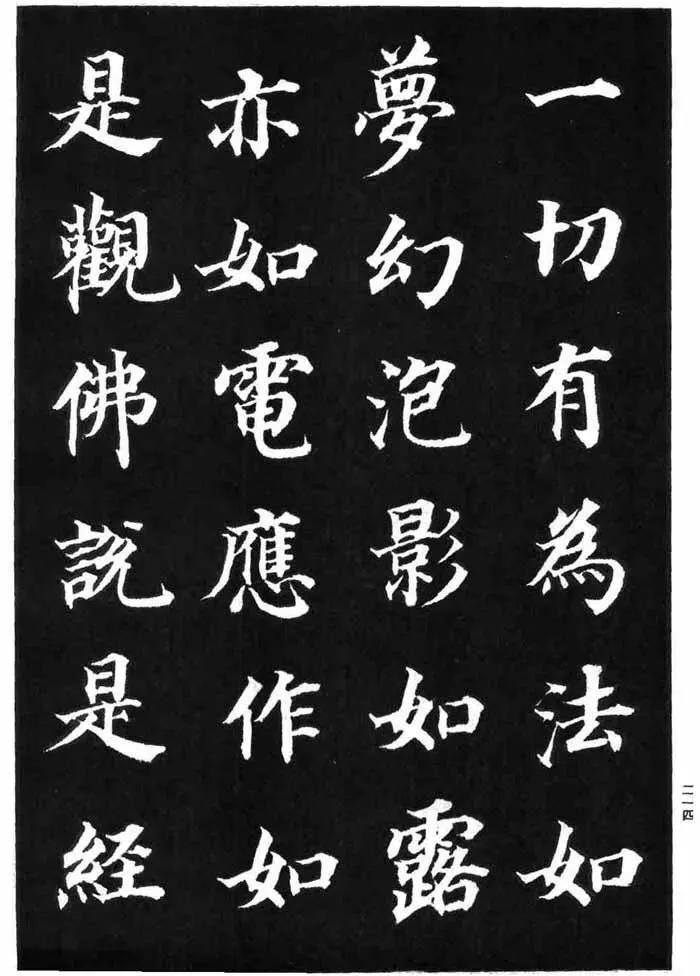 一切有為法如
夢幻泡影如露
亦如電應作如
是觀佛説是経
二二四